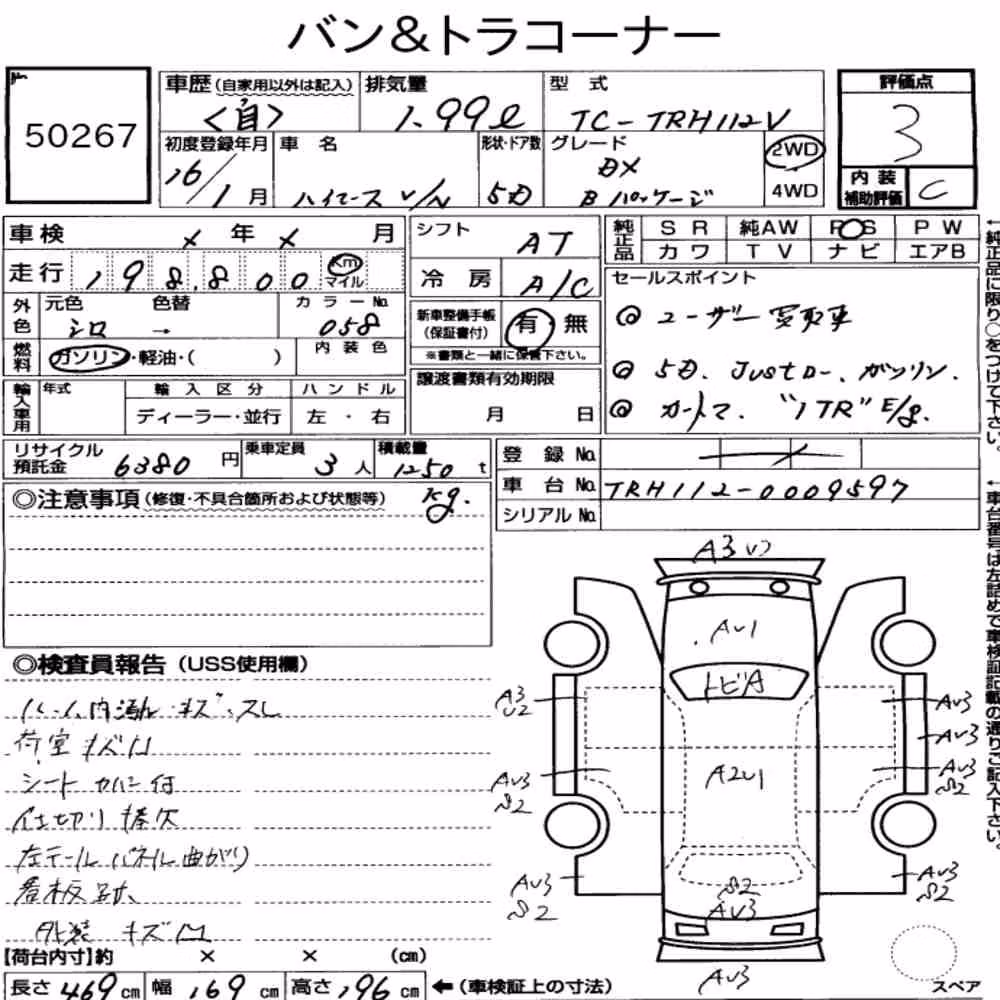 バン&トラコーナー
50267
車歴 (自家用以外は記入) 排気量 型式 評価点
<自> 1.99ℓ TC-TRH112V 3
初度登録年月 車名 形状・ドア数 グレード 2WD
16/1月 ハイエース V/N 5D DX Bパッケージ 4WD
内装補助評価 C
車検 × 年 × 月 シフト AT
純正品 SR 純AW PS PW
カワ TV ナビ エアB
走行 198,800 Km マイル 冷房 A/C
セールスポイント
外色 元色 色替 カラーNo.
シロ → 058
新車整備手帳(保証書付) 有・無
※書類と一緒に保管下さい。
◎ ユーザー買取車
燃料 ガソリン・軽油・( ) 内装色
◎ 5D、Justロー、ガソリン.
輸入車用 年式 輸入区分 ハンドル
ディーラー・並行 左・右
譲渡書類有効期限
月 日
◎ オートマ. "1TR"E/g.
リサイクル預託金 6380円 乗車定員 3人 積載量 1250 t
kg.
登録No.
車台No. TRH112-0009597
シリアルNo.
◎注意事項(修復・不具合箇所および状態等)
←純正品に限り○をつけて下さい。
←車台番号は左詰めで車検証記載の通りご記入下さい。
◎検査員報告(USS使用欄)
荷室キズ凹
シートカバー付
仕切り棒欠
左テールパネル曲がり
看板跡
外装キズ凹
A3U2
AU1
トビA
A3
U2
AU3
S2
A2U1
AU3
AU3
AU3
S2
AU3
S2
S2
AU3
AU3
S2
AU3
【荷台内寸】約 × × (cm)
長さ 469cm 幅 169cm 高さ 196cm ←(車検証上の寸法)
スペア